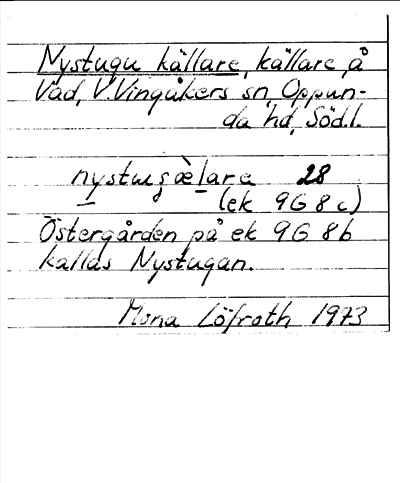 Nystugu källare, källare, å
Vad, V.Vingåkers sn, Oppun-
da hd, Södl.
nystωgæ̀lare 28
(ek 9G 8c)
Östergården på ek 9G 8b
kallas Nystugan.
Mona Löfroth 1973